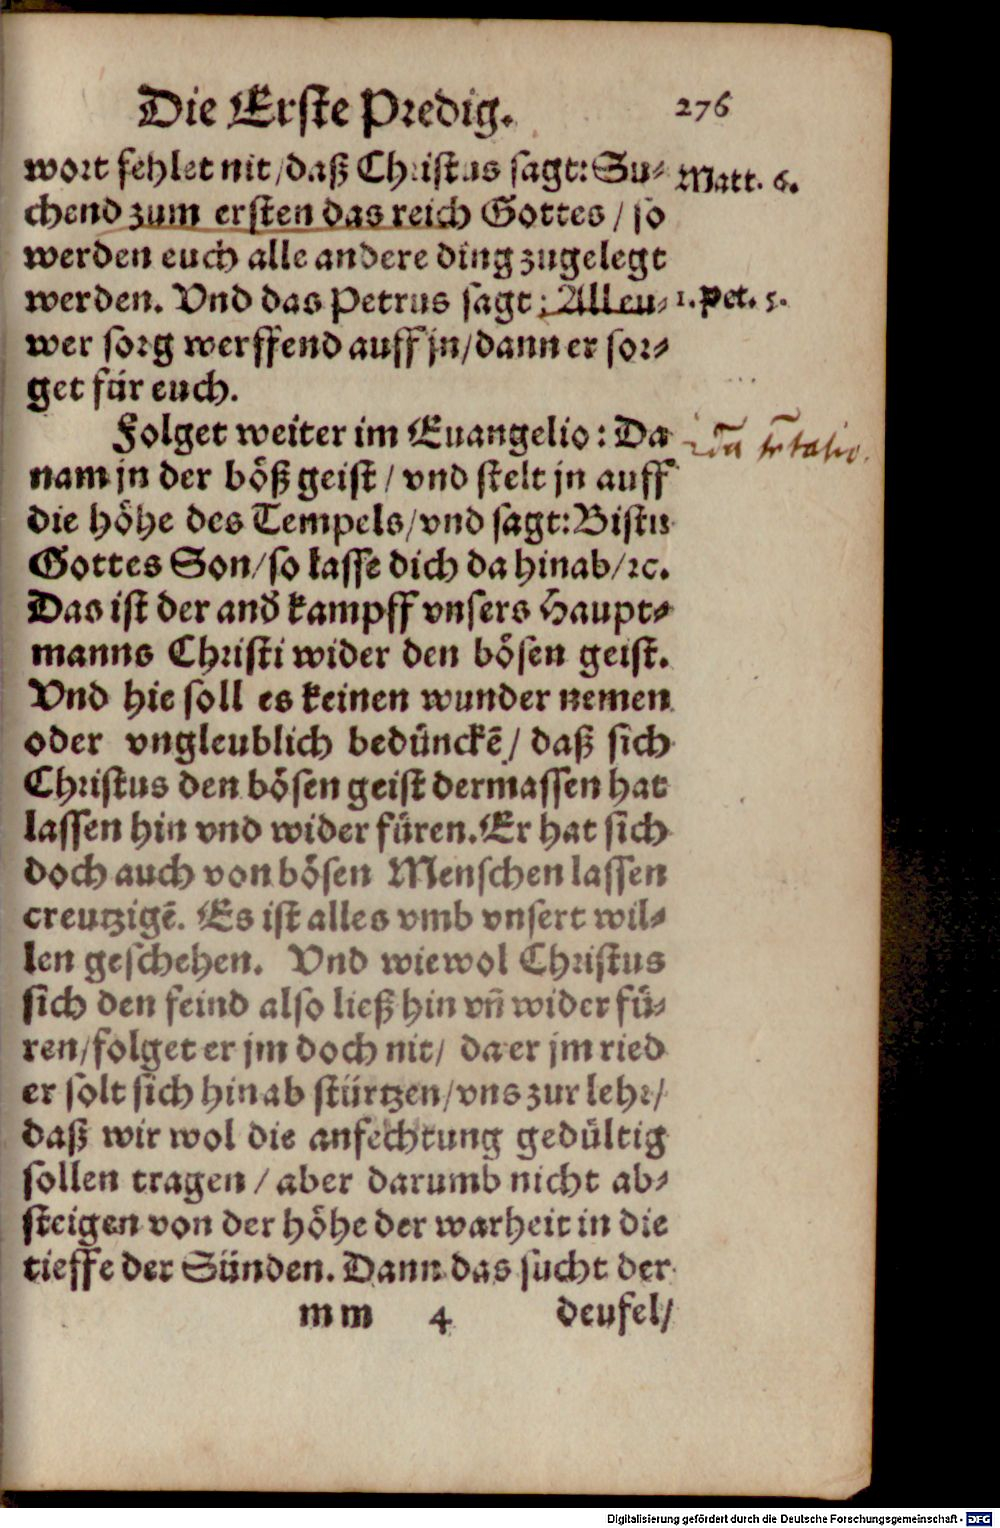 Die Erste Predig. 276
wort fehlet nit/daß Christus sagt: Su⸗ Matt. 6.
chend zum ersten das reich Gottes / so
werden euch alle andere ding zugelegt
werden. Vnd das Petrus sagt: All eu⸗ 1. Pet. 5.
wer sorg werffend auff jn/dann er sor⸗
get für euch.
Folget weiter im Euangelio: Da 2da tẽtatio.
nam jn der böß geist / vnd stelt jn auff
die höhe des Tempels/vnd sagt: Bistu
Gottes Son/so lasse dich da hinab/ꝛc.
Das ist der and̃ kampff vnsers Haupt⸗
manns Christi wider den bösen geist.
Vnd hie soll es keinen wunder nemen
oder vngleublich bedünckẽ/ daß sich
Christus den bösen geist dermassen hat
lassen hin vnd wider füren. Er hat sich
doch auch von bösen Menschen lassen
creutzigẽ. Es ist alles vmb vnsert wil⸗
len geschehen. Vnd wiewol Christus
sich den feind also ließ hin vñ wider fü⸗
ren/folget er jm doch nit/ da er jm ried
er solt sich hinab stürtzen/vns zur lehr/
daß wir wol die anfechtung gedültig
sollen tragen / aber darumb nicht ab⸗
steigen von der höhe der warheit in die
tieffe der Sünden. Dann das sucht der
mm 4 deufel/
Digitalisierung gefördert durch die Deutsche Forschungsgemeinschaft - DFG